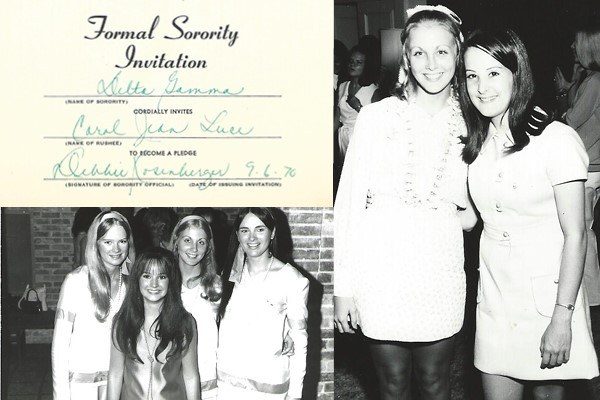 Formal Sorority
Invitation
Delta Gamma
(NAME OF SORORITY)
CORDIALLY INVITES
Carol Jean Luce
(NAME OF RUSHEE)
TO BECOME A PLEDGE
Debbie Rosenberger 9-6-70
(SIGNATURE OF SORORITY OFFICIAL) (DATE OF ISSUING INVITATION)